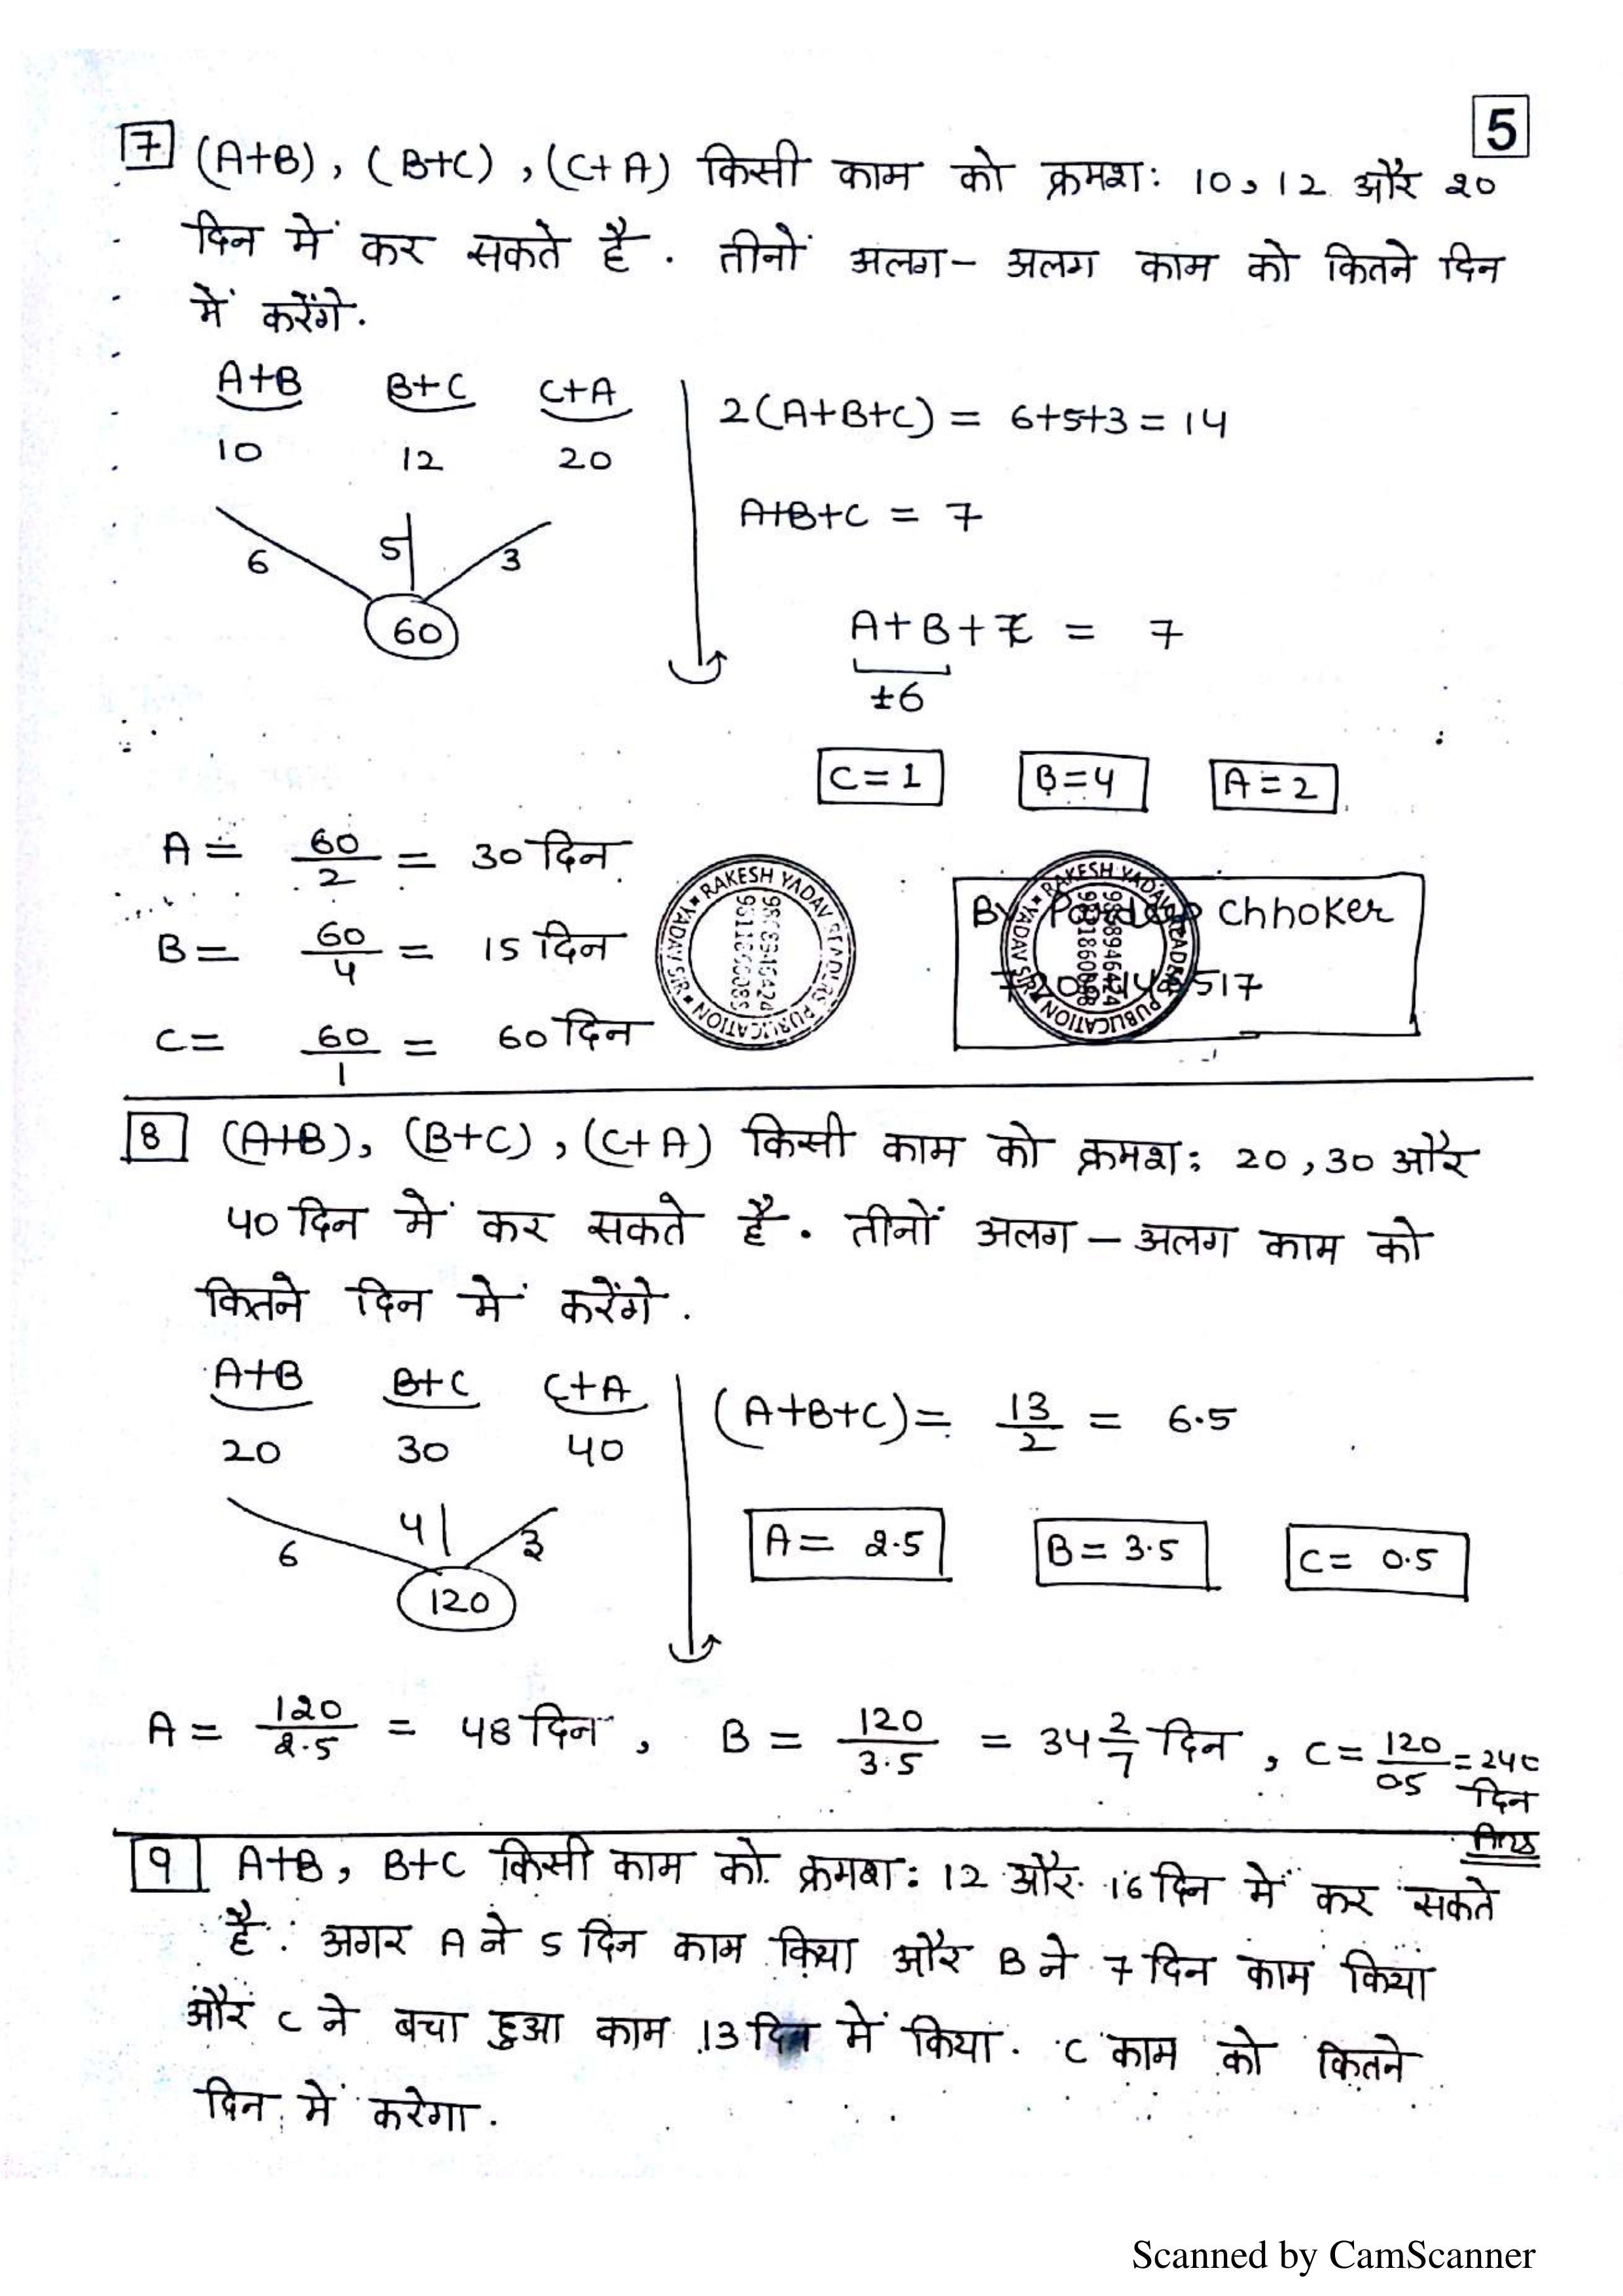 5
7 (A+B), (B+C), (C+A) किसी काम को क्रमश: 10, 12 और 20
दिन में कर सकते है. तीनों अलग-अलग काम को कितने दिन
में करेंगे.
A+B B+C C+A
10 12 20
6 5 3
60
2(A+B+C) = 6+5+3 = 14
A+B+C = 7
A+B+C = 7
±6
C=1 B=4 A=2
A = 60/2 = 30 दिन
B = 60/4 = 15 दिन
C = 60/1 = 60 दिन
RAKESH YADAV READERS PUBLICATION
YADAV SIR
By Chhoker
8 (A+B), (B+C), (C+A) किसी काम को क्रमश: 20, 30 और
40 दिन में कर सकते है. तीनों अलग-अलग काम को
कितने दिन में करेंगे.
A+B B+C C+A
20 30 40
6 4 3
120
(A+B+C) = 13/2 = 6.5
A = 2.5 B = 3.5 C = 0.5
A = 120/2.5 = 48 दिन, B = 120/3.5 = 34 2/7 दिन, C = 120/05 = 240
दिन
Ans
9 A+B, B+C किसी काम को क्रमश: 12 और 16 दिन में कर सकते
है. अगर A ने 5 दिन काम किया और B ने 7 दिन काम किया
और C ने बचा हुआ काम 13 दिन में किया. C काम को कितने
दिन में करेगा.
Scanned by CamScanner